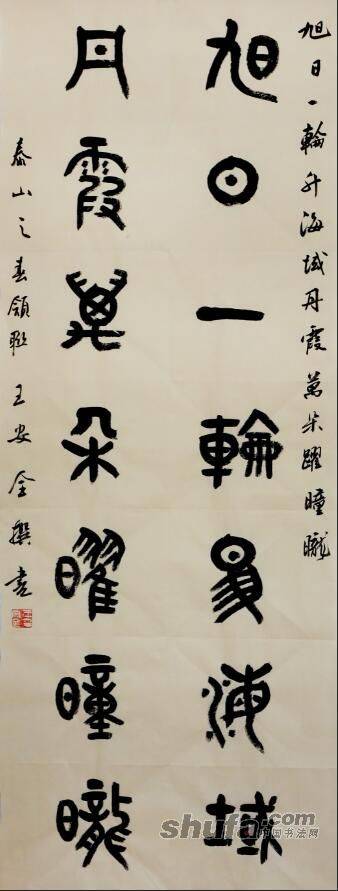 旭日一輪升海域丹霞萬朵躍曈曨
旭日一輪昇海域
丹霞萬朵曜曈曨
泰山之春領聯 王安全撰書
shufa.com
中国书法网